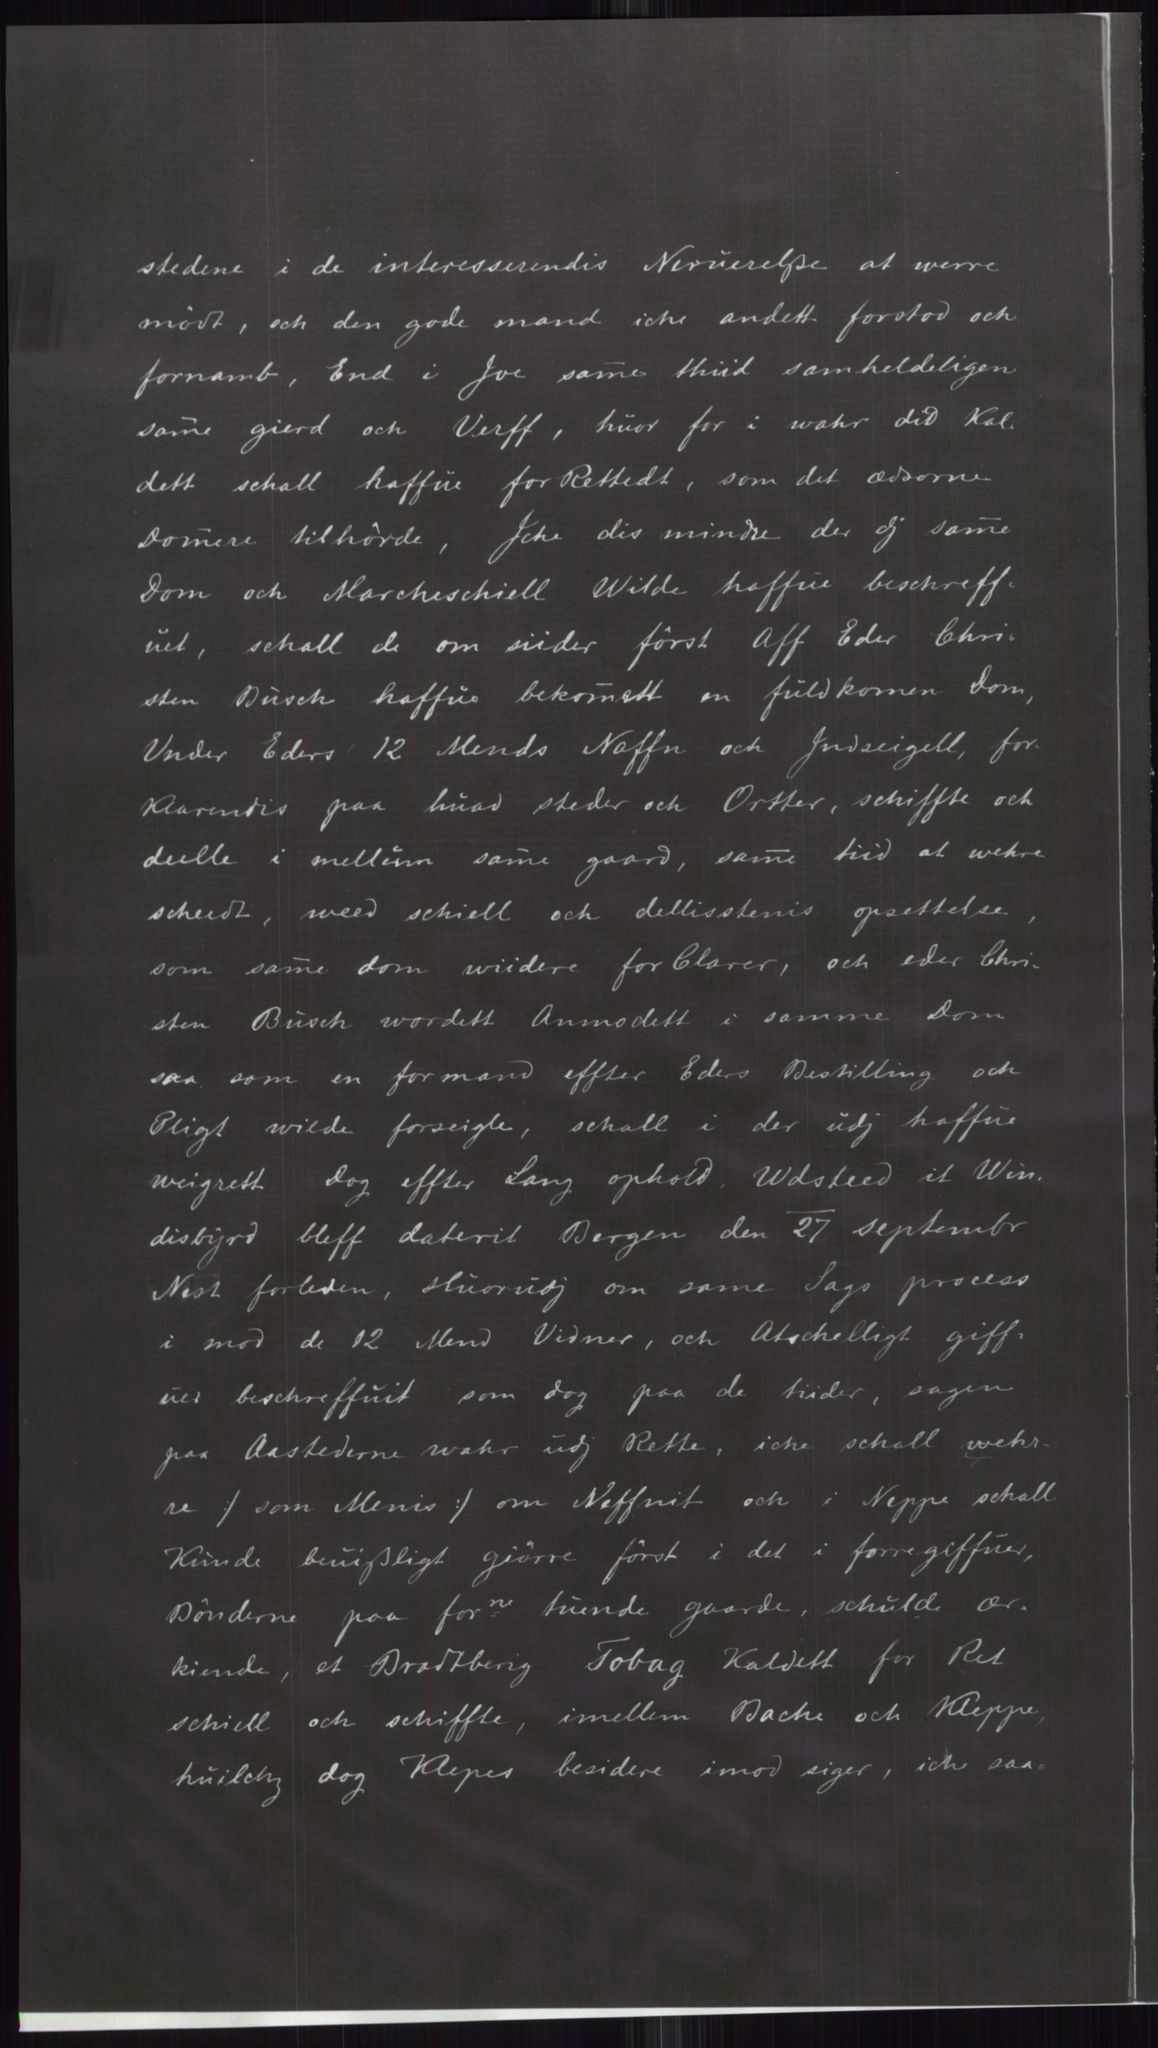 stedene i de interesserendis Neruerelsse at werre
mödt, och den gode mand iche andett forstod och
fornamb, End i Joe sam̄e thiid samheldeligen
sam̄e gierd och Verff, huor for i wahr did Kal-
dett schall haffue forRettedt, som det ædsorne
Dom̄ere tilhörde, Iche dis mindre der dj sam̄e
Dom och Marcheschiell Wilde haffue beschreff-
uet, schall de om siider först Aff Eder Chri-
sten Busch haffue bekom̄ett en fuldkomen Dom,
Vnder Eders 12 Mends Naffn och Indseigell, for-
Klarendis paa huad steder och Ortter, schiffte och
deelle i mellum sam̄e gaard, sam̄e tiid at wehre
scheedt, meed schiell och dellisstenis opsettelse,
som sam̄e dom wiidere forClarer, och eder Chri-
sten Busch wordett Anmodett i samme Dom
saa som en formand effter Eders Bestilling och
Pligt wilde forseigle, schall i der udj haffue
weigrett Dog effter Lang ophold, Udsteed it Win-
disbyrd bleff daterit Bergen den 27 septembr
Nest forleden, Huorudj om same Sags process
i mod de 12 Mend Vidner, och Atschelligt giff-
uer beschreffuit som dog paa de tiider, sagen
paa Aastederne wahr udj Rette, iche schall wehr-
re :/ som Menis :/ om Neffnit och i Neppe schall
Kunde beuißligt giörre först i det i forregiffuer,
Bönderne paa forne tuende gaarde, schulde er-
kiende, et Bradtberig Tobag Kaldett for Ret
schiell och schiffte, imellem Bache och Kleppe,
huilchz dog Klepes besidere imod siger, iche saa-